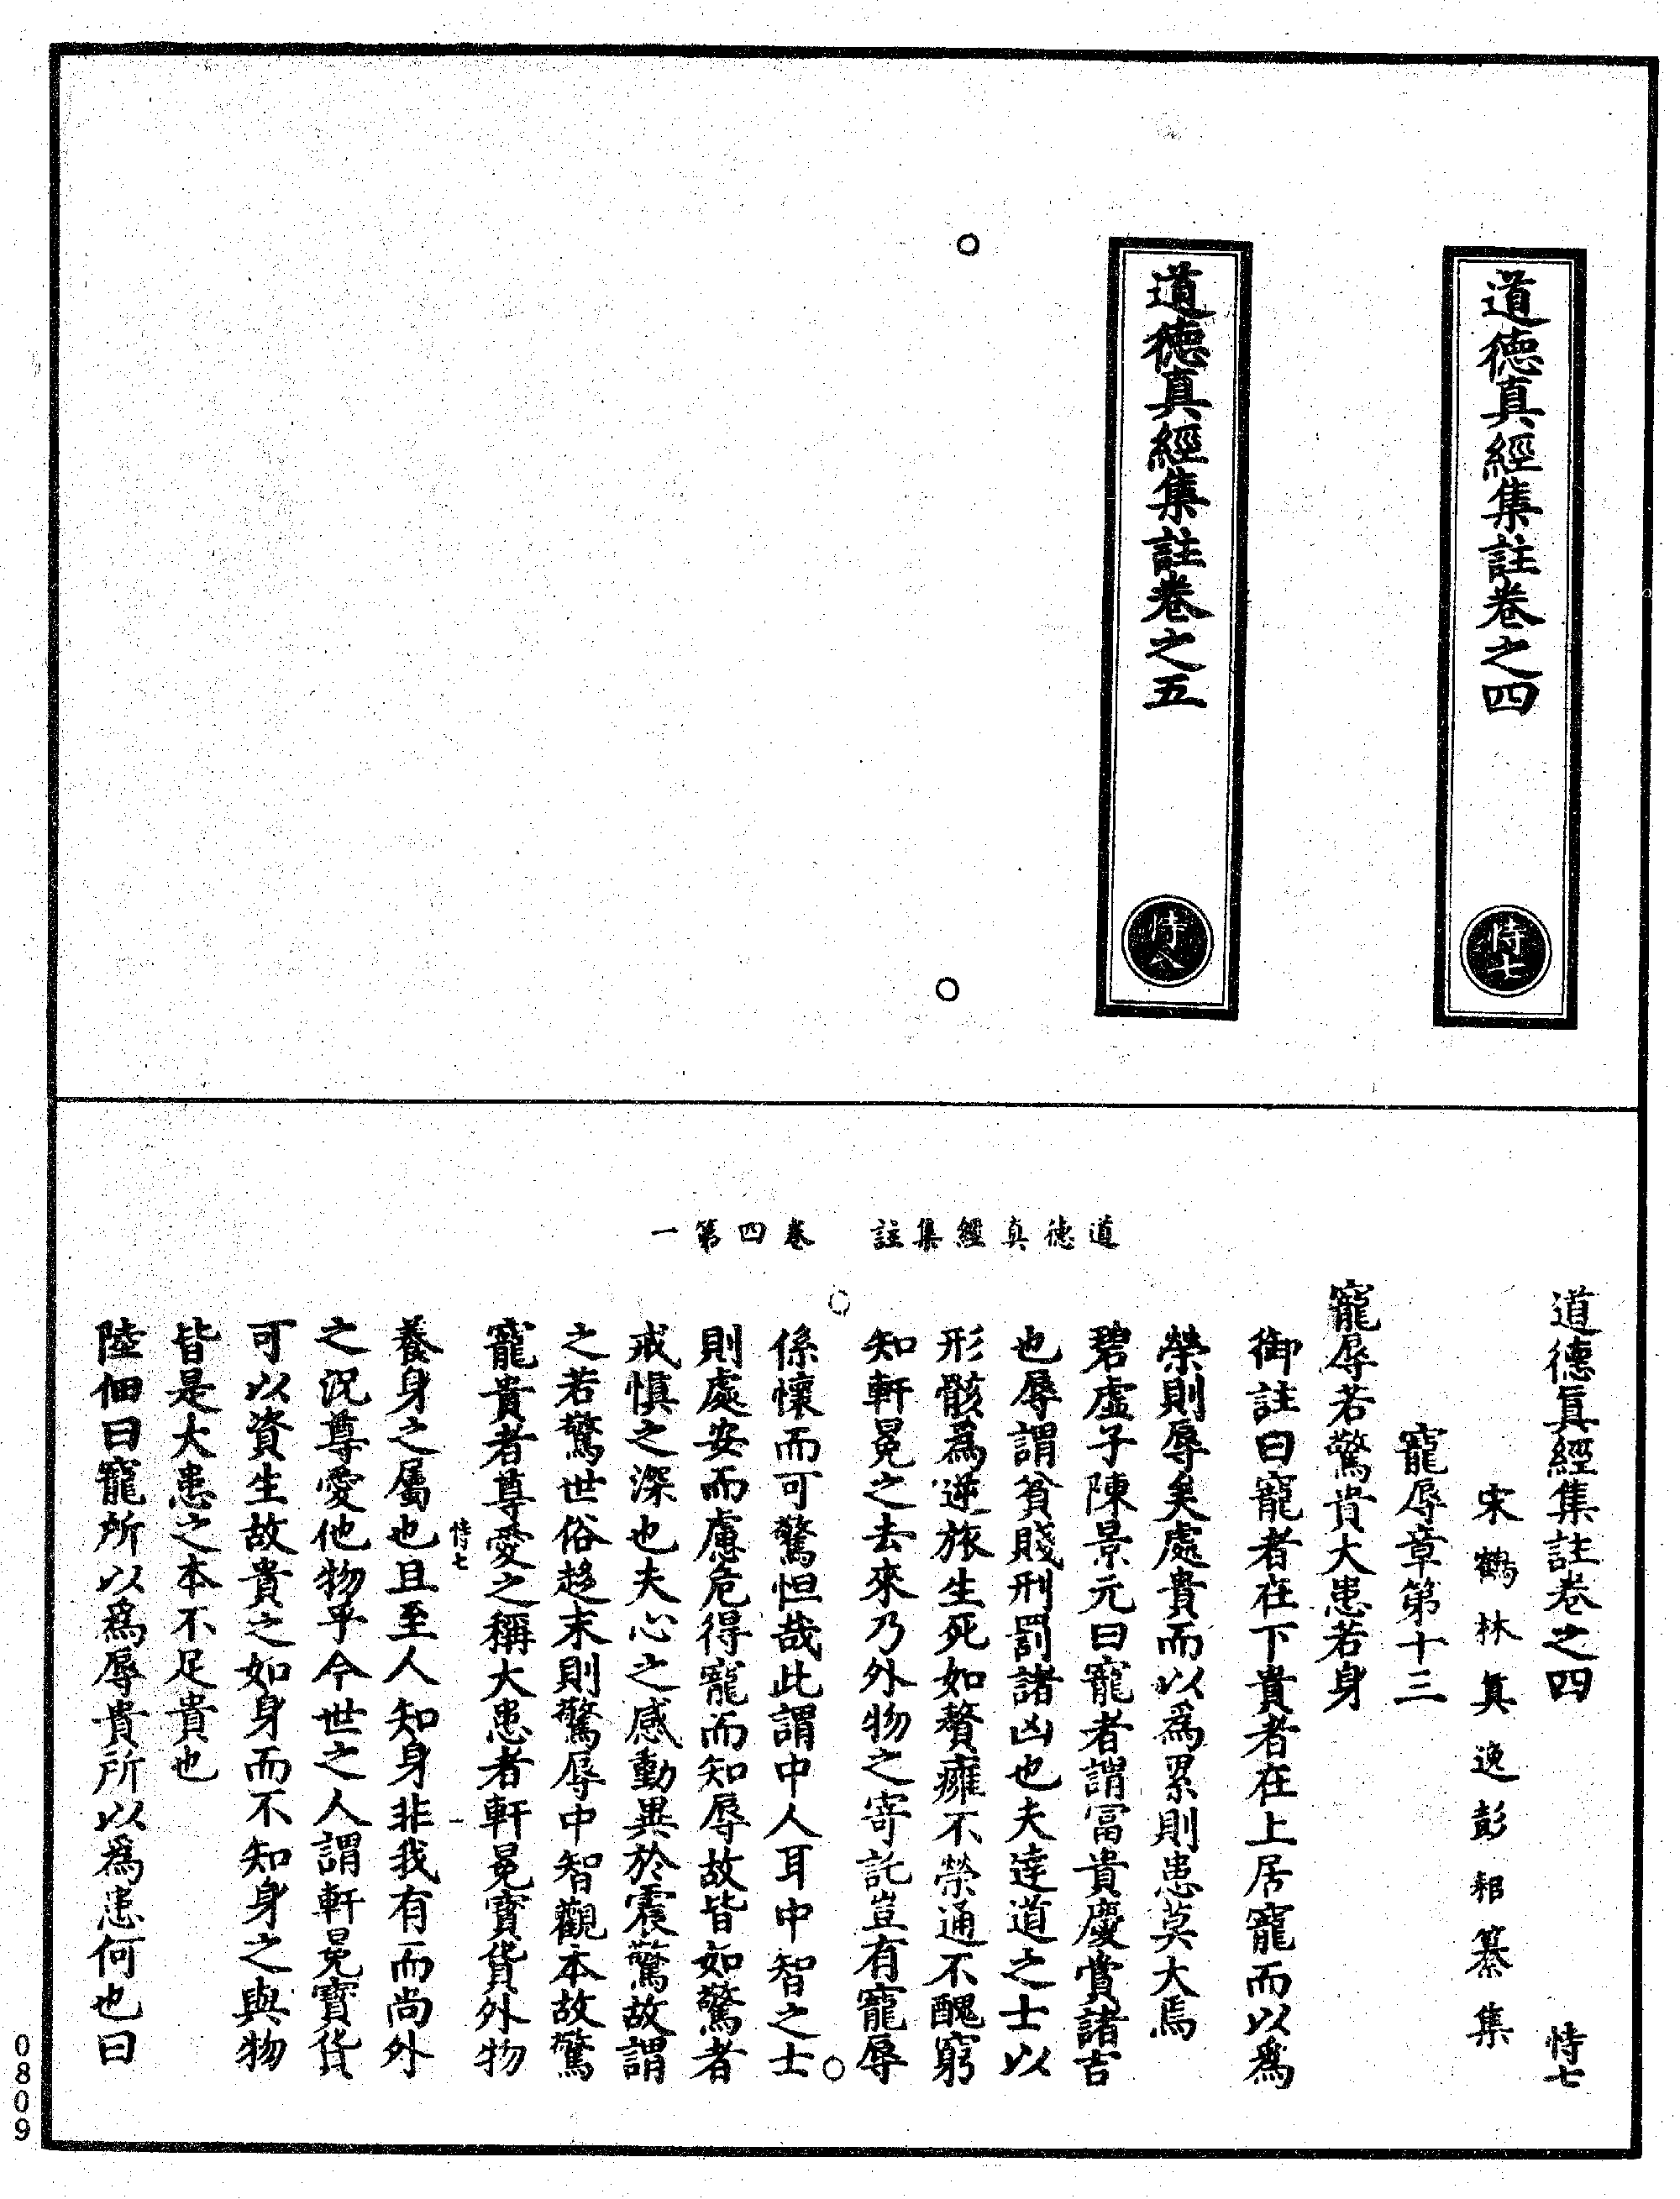 道德真經集註卷之四
恃七
道德真經集註卷之五
恃八
道德真經集註 卷四第一
道德真經集註卷之四 恃七
宋鶴林真逸彭耜纂集
寵辱章第十三
寵辱若驚貴大患若身
御註曰寵者在下貴者在上居寵而以為
榮則辱矣處貴而以為累則患莫大焉
碧虛子陳景元曰寵者謂冨貴慶賞諸吉
也辱謂貧賤刑罰諸凶也夫達道之士以
形骸為逆旅生死如贅癰不榮通不醜窮
知軒冕之去來乃外物之寄託豈有寵辱
係懷而可驚怛哉此謂中人耳中智之士
則處安而慮危得寵而知辱故皆如驚者
戒慎之深也夫心之感動異於震驚故謂
之若驚世俗趍末則驚辱中智觀本故驚
寵貴者尊愛之稱大患者軒冕寳貨外物
恃七
養身之屬也且至人知身非我有而尚外
之況尊愛他物乎今世之人謂軒冕寳貨
可以資生故貴之如身而不知身之與物
皆是大患之本不足貴也
陸佃曰寵所以為辱貴所以為患何也曰
0809